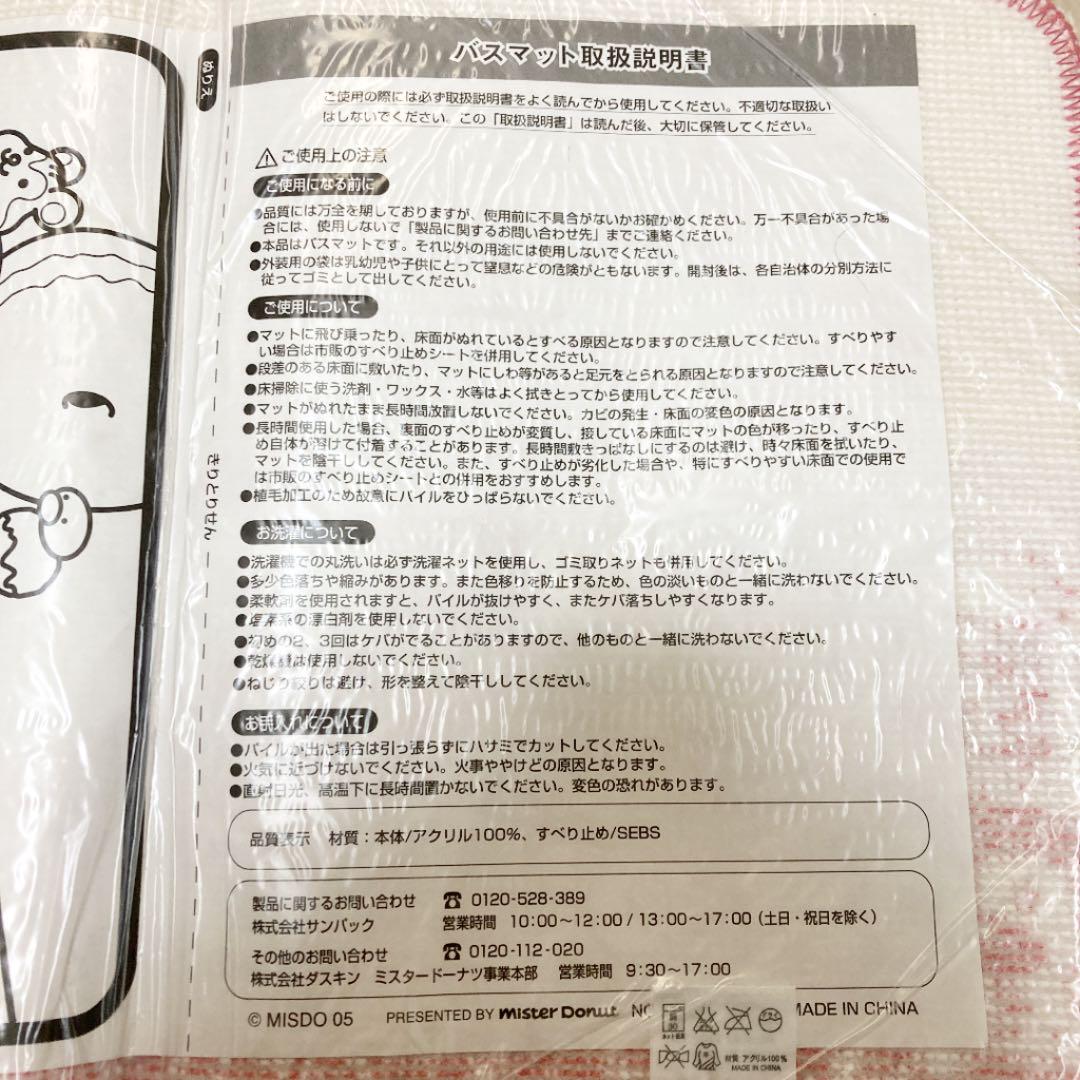 ぬりえ
きりとりせん
バスマット取扱説明書
ご使用の際には必ず取扱説明書をよく読んでから使用してください。不適切な取扱い
はしないでください。この「取扱説明書」は読んだ後、大切に保管してください。
ご使用上の注意
ご使用になる前に
●品質には万全を期しておりますが、使用前に不具合がないかお確かめください。万一不具合があった場
合には、使用しないで「製品に関するお問い合わせ先」までご連絡ください。
●本品はバスマットです。それ以外の用途には使用しないでください。
●外装用の袋は乳幼児や子供にとって窒息などの危険がともないます。開封後は、各自治体の分別方法に
従ってゴミとして出してください。
ご使用について
●マットに飛び乗ったり、床面がぬれているとすべる原因となりますので注意してください。すべりやす
い場合は市販のすべり止めシートを併用してください。
●段差のある床面に敷いたり、マットにしわ等があると足元をとられる原因となりますので注意してください。
●床掃除に使う洗剤・ワックス・水等はよく拭きとってから使用してください。
●マットがぬれたまま長時間放置しないでください。カビの発生・床面の変色の原因となります。
●長時間使用した場合、裏面のすべり止めが変質し、接している床面にマットの色が移ったり、すべり止
め自体が溶けて付着することがあります。長時間敷きっぱなしにするのは避け、時々床面を拭いたり、
マットを陰干ししてください。また、すべり止めが劣化した場合や、特にすべりやすい床面での使用で
は市販のすべり止めシートとの併用をおすすめします。
●植毛加工のため故意にパイルをひっぱらないでください。
お洗濯について
●洗濯機での丸洗いは必ず洗濯ネットを使用し、ゴミ取りネットも併用してください。
●多少色落ちや縮みがあります。また色移りを防止するため、色の淡いものと一緒に洗わないでください。
●柔軟剤を使用されますと、パイルが抜けやすく、またケバ落ちしやすくなります。
●塩素系の漂白剤を使用しないでください。
●初めの2、3回はケバがでることがありますので、他のものと一緒に洗わないでください。
●乾燥機は使用しないでください。
●ねじり絞りは避け、形を整えて陰干ししてください。
お手入れについて
●パイルが出た場合は引っ張らずにハサミでカットしてください。
●火気に近づけないでください。火事ややけどの原因となります。
●直射日光、高温下に長時間置かないでください。変色の恐れがあります。
品質表示 材質：本体/アクリル100%、すべり止め/SEBS
製品に関するお問い合わせ ☎ 0120-528-389
株式会社サンパック 営業時間 10:00～12:00 / 13:00～17:00（土日・祝日を除く）
その他のお問い合わせ ☎ 0120-112-020
株式会社ダスキン ミスタードーナツ事業本部 営業時間 9:30～17:00
© MISDO 05 PRESENTED BY mister Donut MADE IN CHINA
材質 アクリル100%
MADE IN CHINA